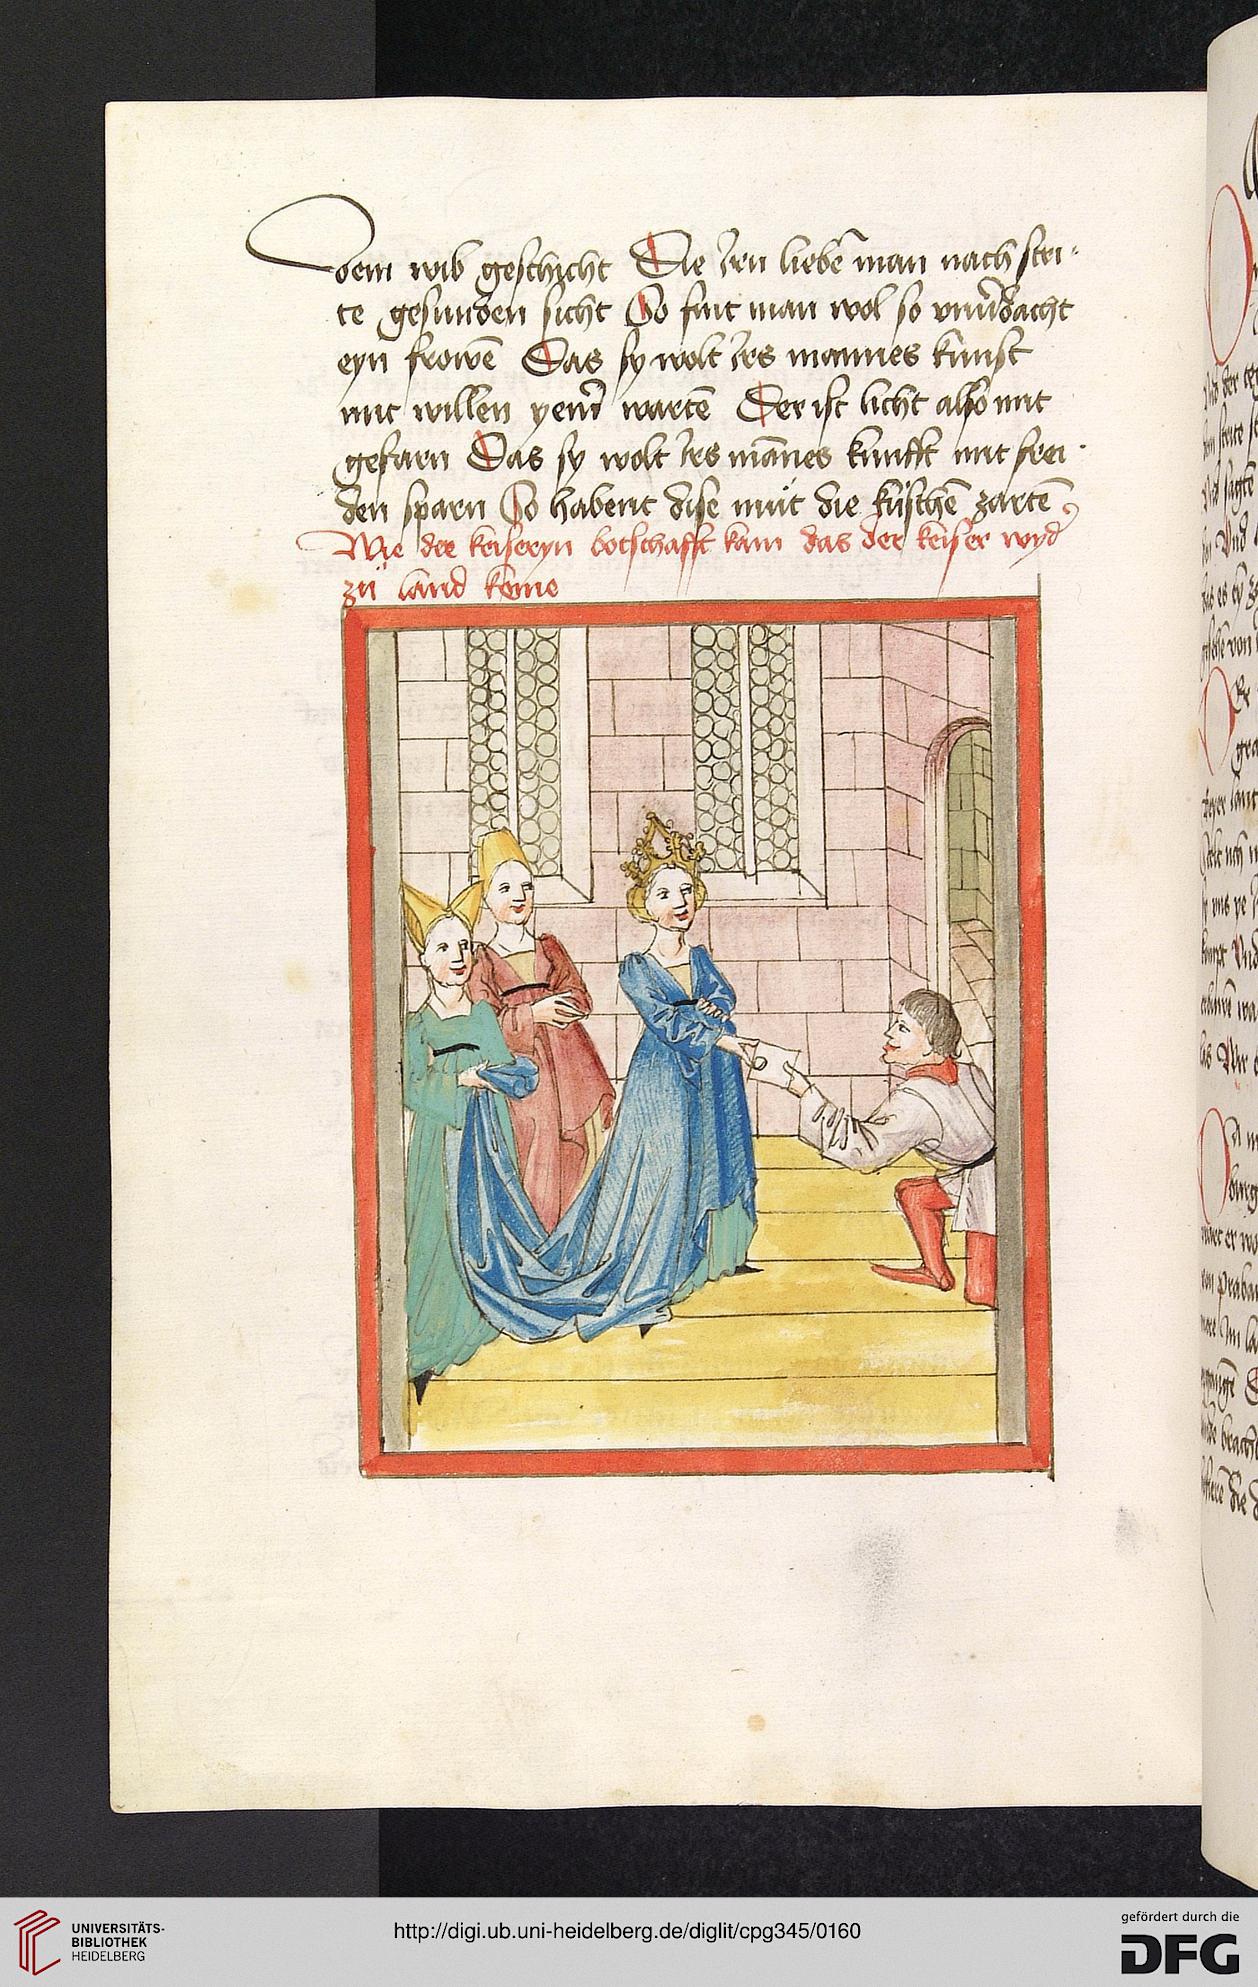 dem wib geschicht Die iren liebē man nach stri
te gesunden sicht So sint man wol so vnuˀdacht
eyn frowē Das sy wolt irs mannes kunst
mit willen yemˀ wartē Der ist licht also mit
gefarn Das sy wolt irs mānes kunfft mit frei
den sparn So habent dise müt die kuschē zartē
Wie der keiseryn botschafft kam das der keiser wydˀ
zü land keme
UNIVERSITÄTS-
BIBLIOTHEK
HEIDELBERG
http://digi.ub.uni-heidelberg.de/diglit/cpg345/0160
gefördert durch die
DFG